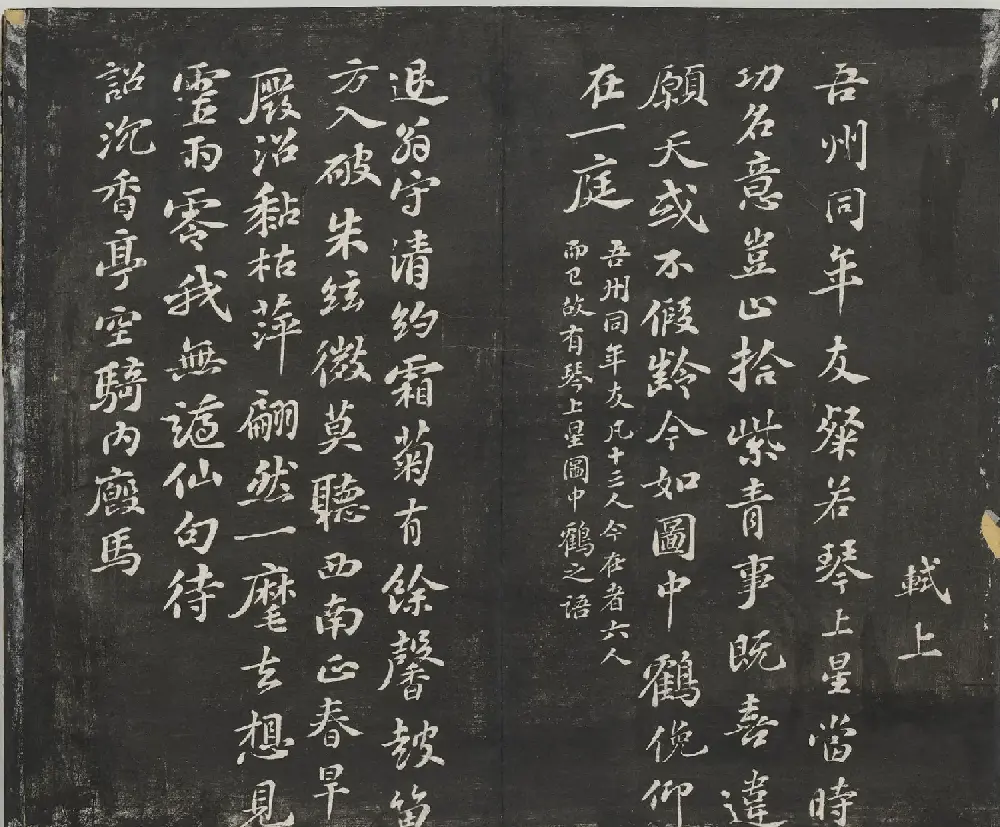 軾上
吾州同年友粲若琴上星當時
功名意豈止拾紫青事既喜違
願天或不假齡今如圖中鶴俛仰
在一庭
吾州同年友凡十三人今在者六人
而已故有琴上星圖中鶴之語
退翁守清約霜菊有餘馨鼓笛
方入破朱絃微莫聽西南正春旱
廢沼黏枯萍翩然一麾去想見
靈雨零我無謫仙句待
詔沉香亭空騎內廄馬